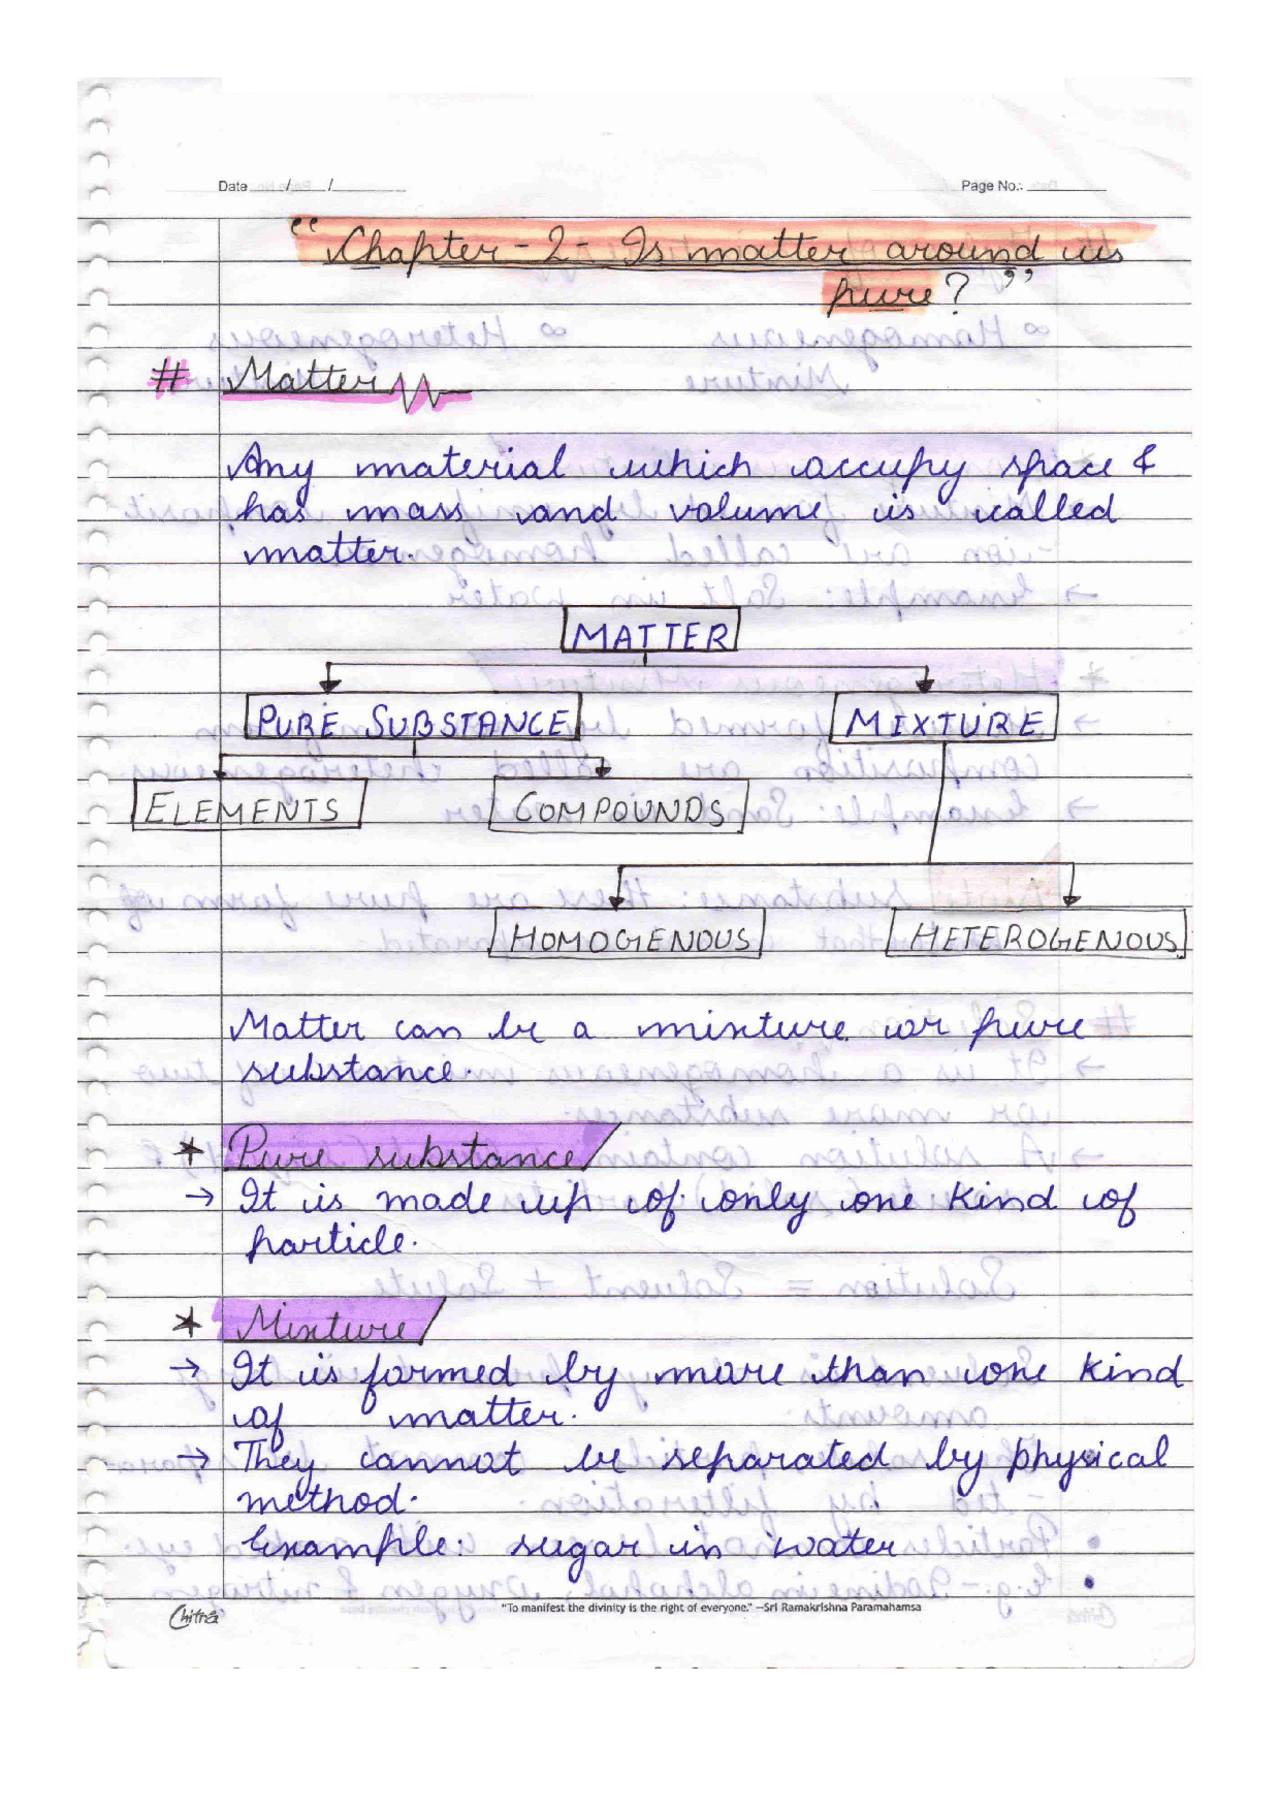 Date / /
Page No.:
"Chapter-2- Is matter around us
pure?"
# Matter
Any material which occupy space &
has mass and volume is called
matter.
MATTER
PURE SUBSTANCE MIXTURE
ELEMENTS COMPOUNDS
HOMOGENOUS HETEROGENOUS
Matter can be a mixture or pure
substance.
* Pure substance
→ It is made up of only one kind of
particle.
* Mixture
→ It is formed by more than one kind
of matter.
→ They cannot be separated by physical
method.
Example: sugar in water
Chitra
"To manifest the divinity is the right of everyone." —Sri Ramakrishna Paramahamsa